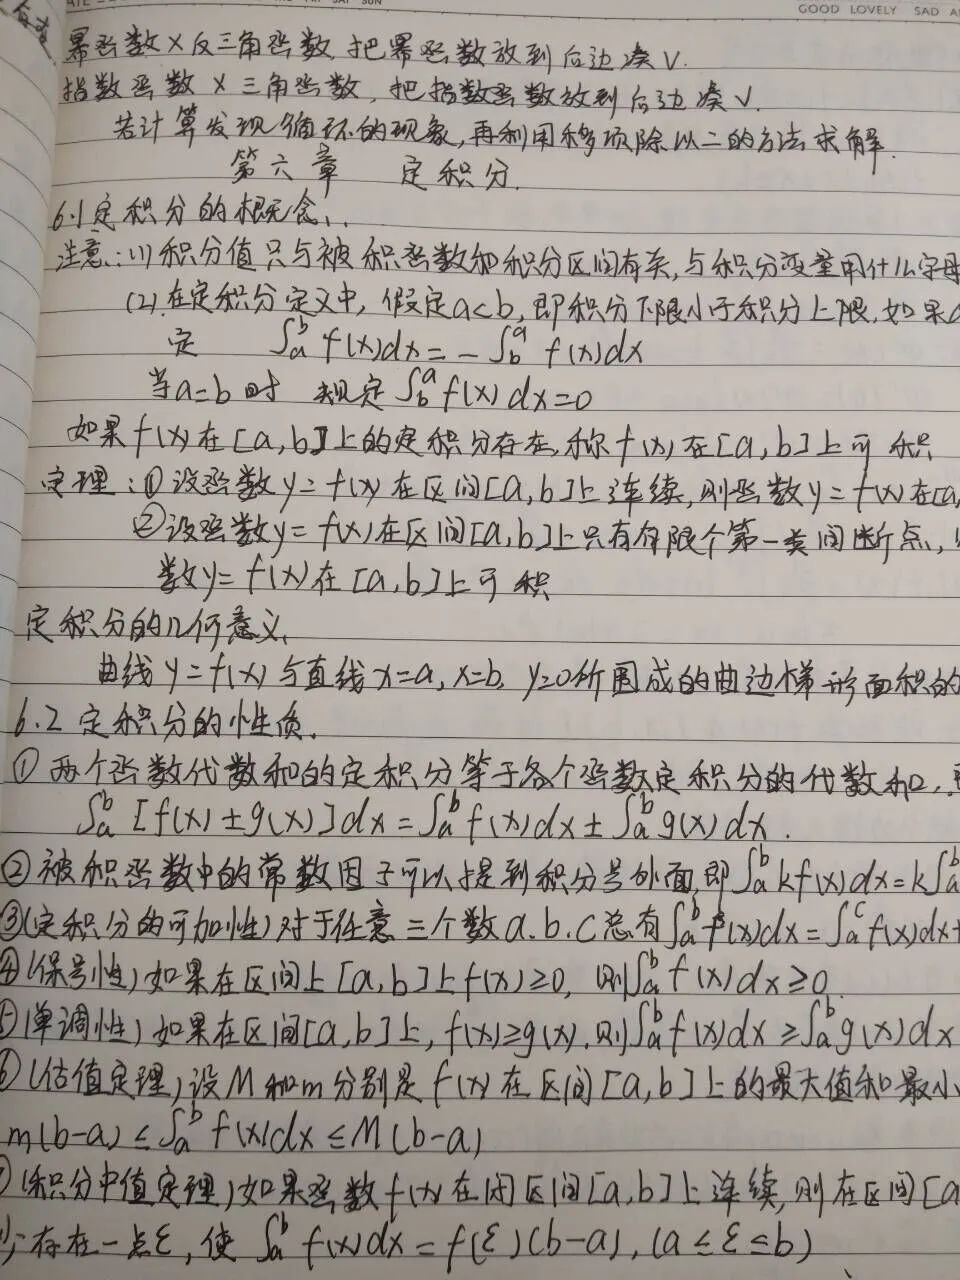 ATE SAT SUN
GOOD LOVELY SAD
幂函数×反三角函数,把幂函数放到后边凑V.
指数函数×三角函数,把指数函数放到后边凑V.
若计算发现循环的现象,再利用移项除以二的方法求解.
第六章 定积分.
6.1定积分的概念.
注意:(1)积分值只与被积函数和积分区间有关,与积分变量用什么字母
(2).在定积分定义中,假定a<b,即积分下限小于积分上限.如果
定 ∫_a^b f(x)dx=-∫_b^a f(x)dx
当a=b时 规定∫_b^a f(x)dx=0
如果f(x)在[a,b]上的定积分存在,称f(x)在[a,b]上可积
定理:①设函数y=f(x)在区间[a,b]上连续,则函数y=f(x)在[a,
②设函数y=f(x)在区间[a,b]上只有有限个第一类间断点,
数y=f(x)在[a,b]上可积
定积分的几何意义
曲线y=f(x)与直线x=a,x=b,y=0所围成的曲边梯形面积的
6.2定积分的性质.
①两个函数代数和的定积分等于各个函数定积分的代数和.
∫_a^b[f(x)±g(x)]dx=∫_a^b f(x)dx±∫_a^b g(x)dx.
②被积函数中的常数因子可以提到积分号外面,即∫_a^b kf(x)dx=k∫_a^b
③(定积分的可加性)对于任意三个数a.b.c总有∫_a^b f(x)dx=∫_a^c f(x)dx+
④(保号性)如果在区间上[a,b]上f(x)≥0,则∫_a^b f(x)dx≥0.
⑤(单调性)如果在区间[a,b]上,f(x)≥g(x),则∫_a^b f(x)dx≥∫_a^b g(x)dx
⑥(估值定理)设M和m分别是f(x)在区间[a,b]上的最大值和最小
m(b-a)≤∫_a^b f(x)dx≤M(b-a)
(积分中值定理)如果函数f(x)在闭区间[a,b]上连续,则在区间[a
存在一点ε,使∫_a^b f(x)dx=f(ε)(b-a),(a≤ε≤b)